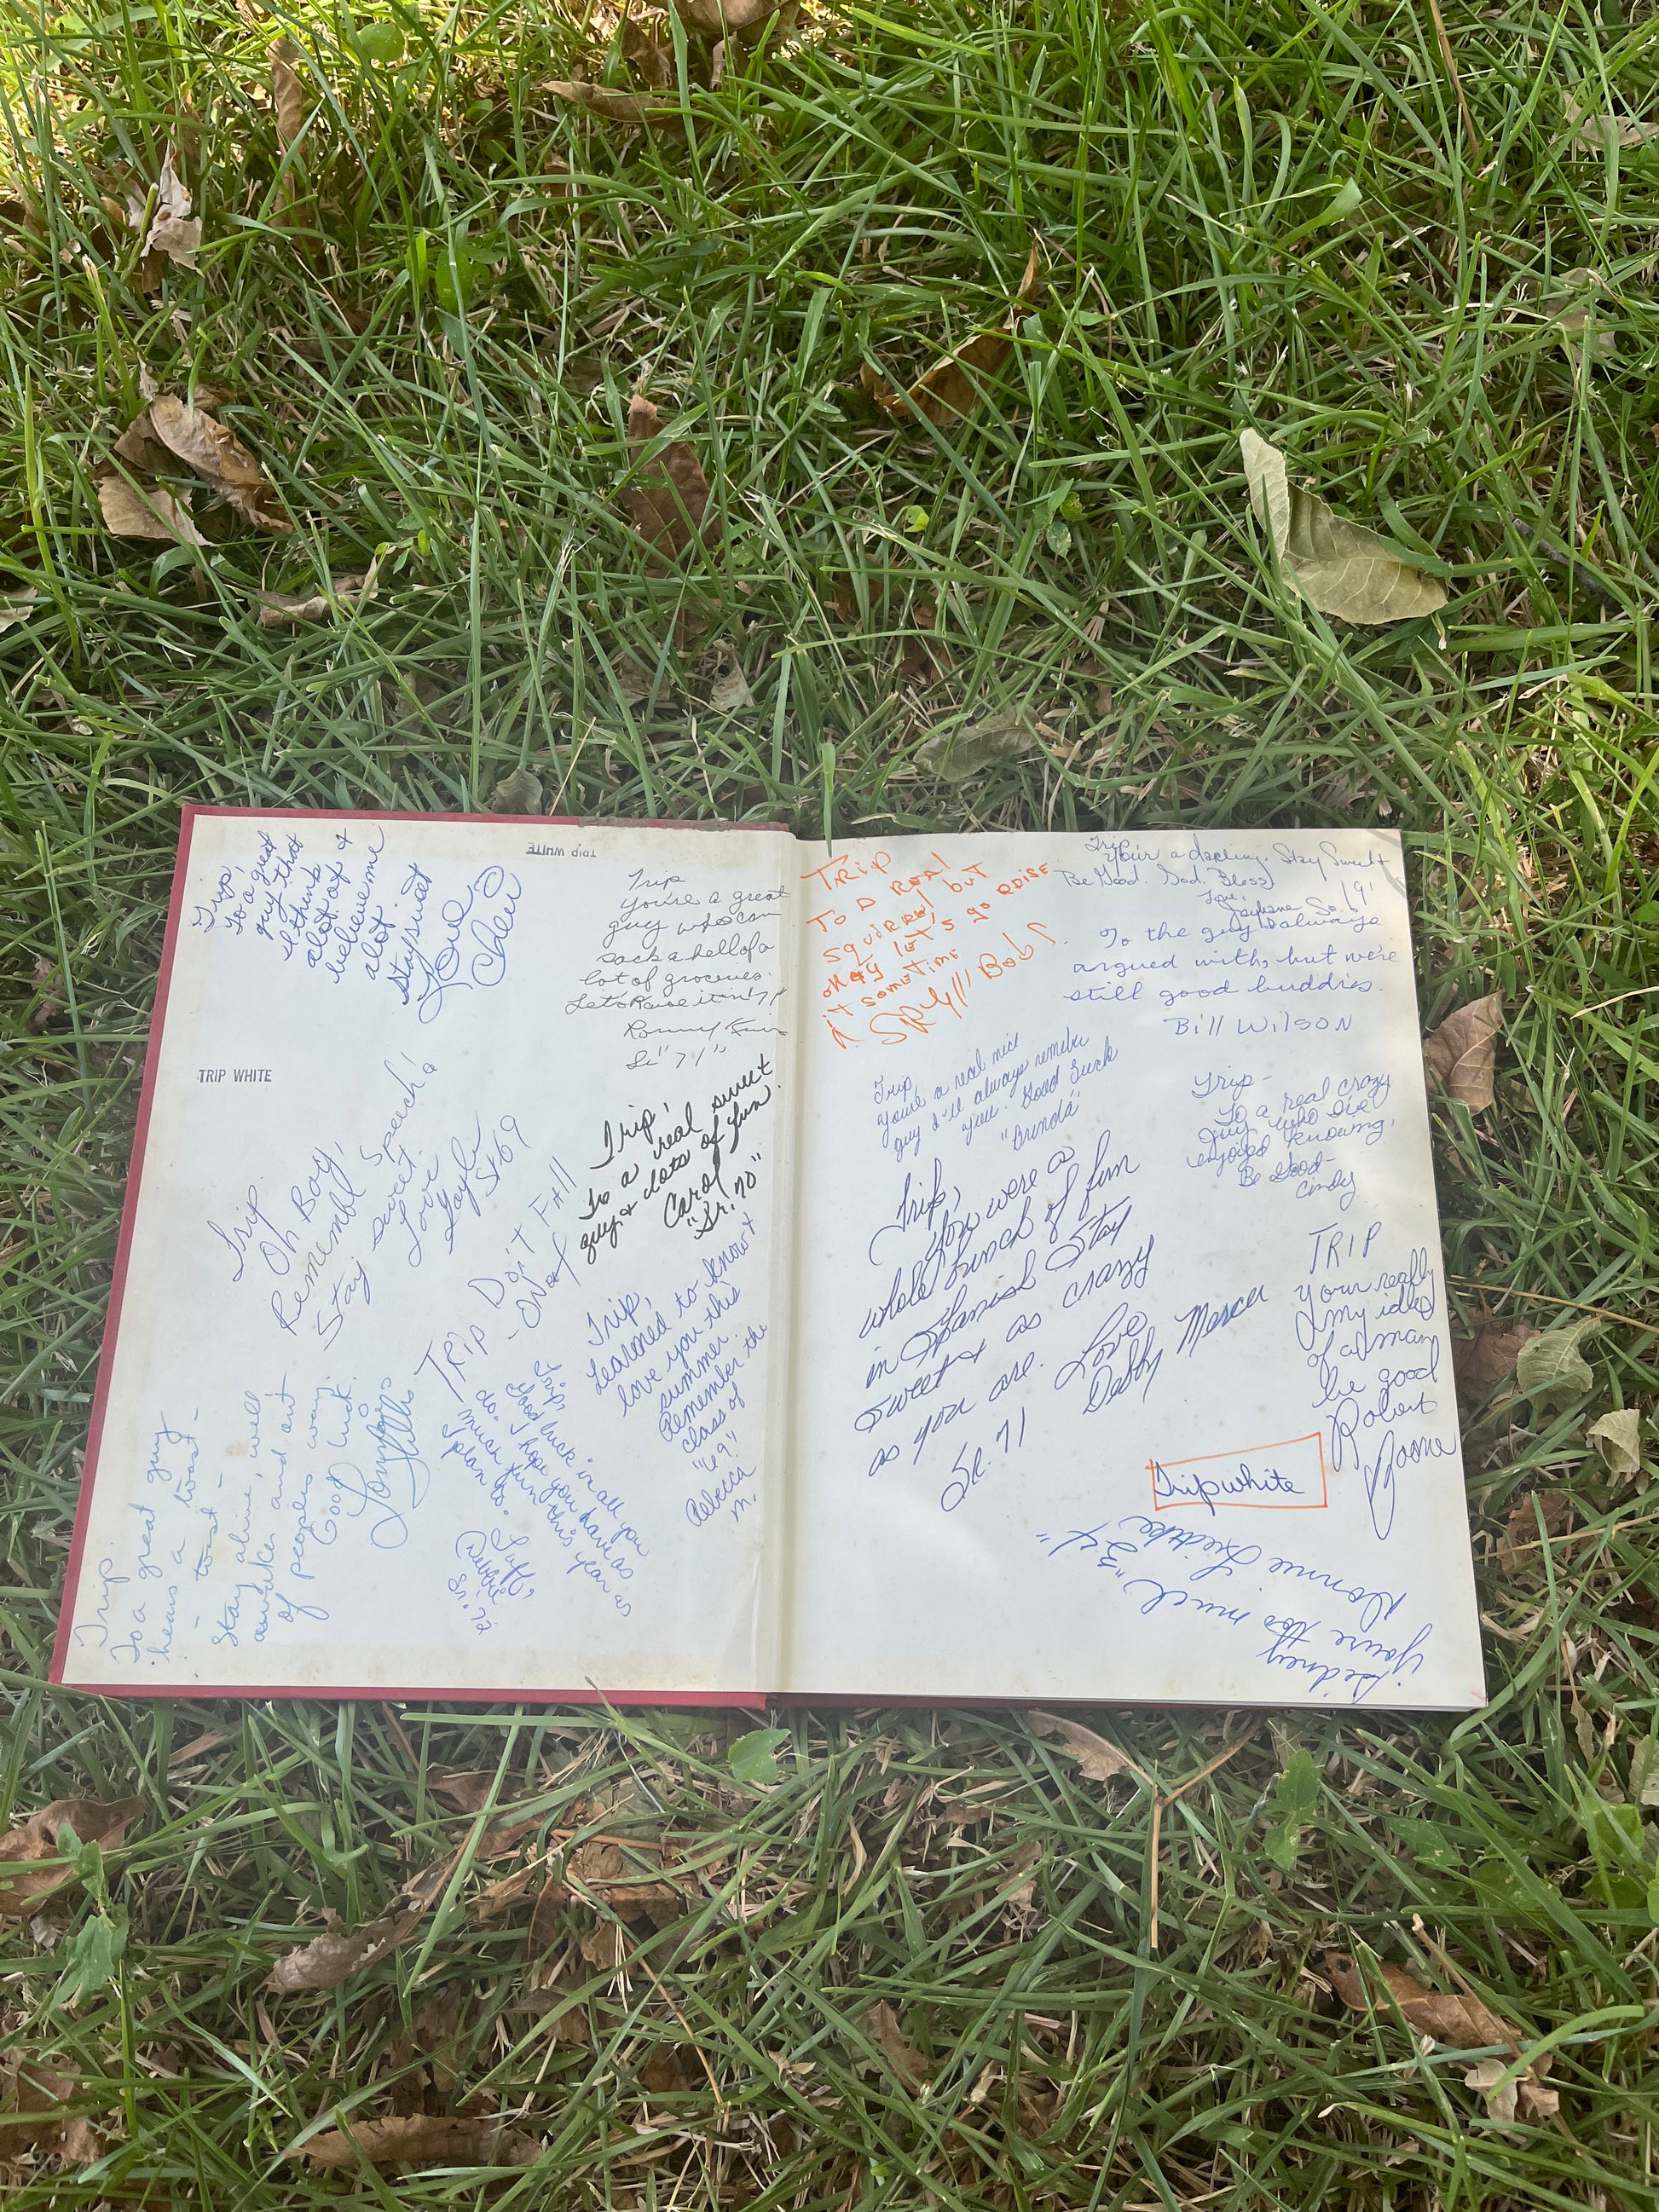 Trip,
To a great
guy that
I think
alot of &
believe me
alot.
Stay sweet
Love
TRIP WHITE
Trip
You're a great
guy who can
sack a hell of a
lot of groceries.
Let's Raise it in '71
Ronny
Sr "71"
TRIP WHITE
Trip.
Oh Boy,
Rememb! Speech!
Stay sweet.
Love
Gayle
Sr 69
Trip,
To a real sweet
guy & lots of fun.
Carol
"Sr. 70"
TRIP Don't Fall
- ON
Trip,
Learned to know &
love you this
summer.
Remember the
class of
"69"
Rebecca
M.
Trip,
Good luck in all you
do. I hope you have as
much fun this year as
I plan to.
Luff,
Debbie
Sr. 72
Trip.
To a great guy
hears a toast -
- toast -
Stay alive, well
awake and out
of peoples way.
Good luck.
TRIP
To A ReAl
SQUIRRel but
okay let's go RAISE
it sometime
Bob S.
Trip,
Your a darling. Stay Sweet
Be Good. God Bless
Love,
So. '91
To the guy I always
argued with, but were
still good buddies.
Bill Wilson
Trip,
You're a real nice
guy I'll always remember
you. Good Luck
"Brinda"
Trip -
To a real crazy
guy who I've
enjoyed knowing.
Be Good -
Cindy
Trip,
You were a
whole bunch of fun
in Spanish Stay
sweet & as crazy
as you are.
Love
Debby Mercer
Sr. 71
TRIP
Your really
my idle
of a man
be good
Robert
Boone
Trip white
Sidney
You're too much
Donnie Liedtke
"34"